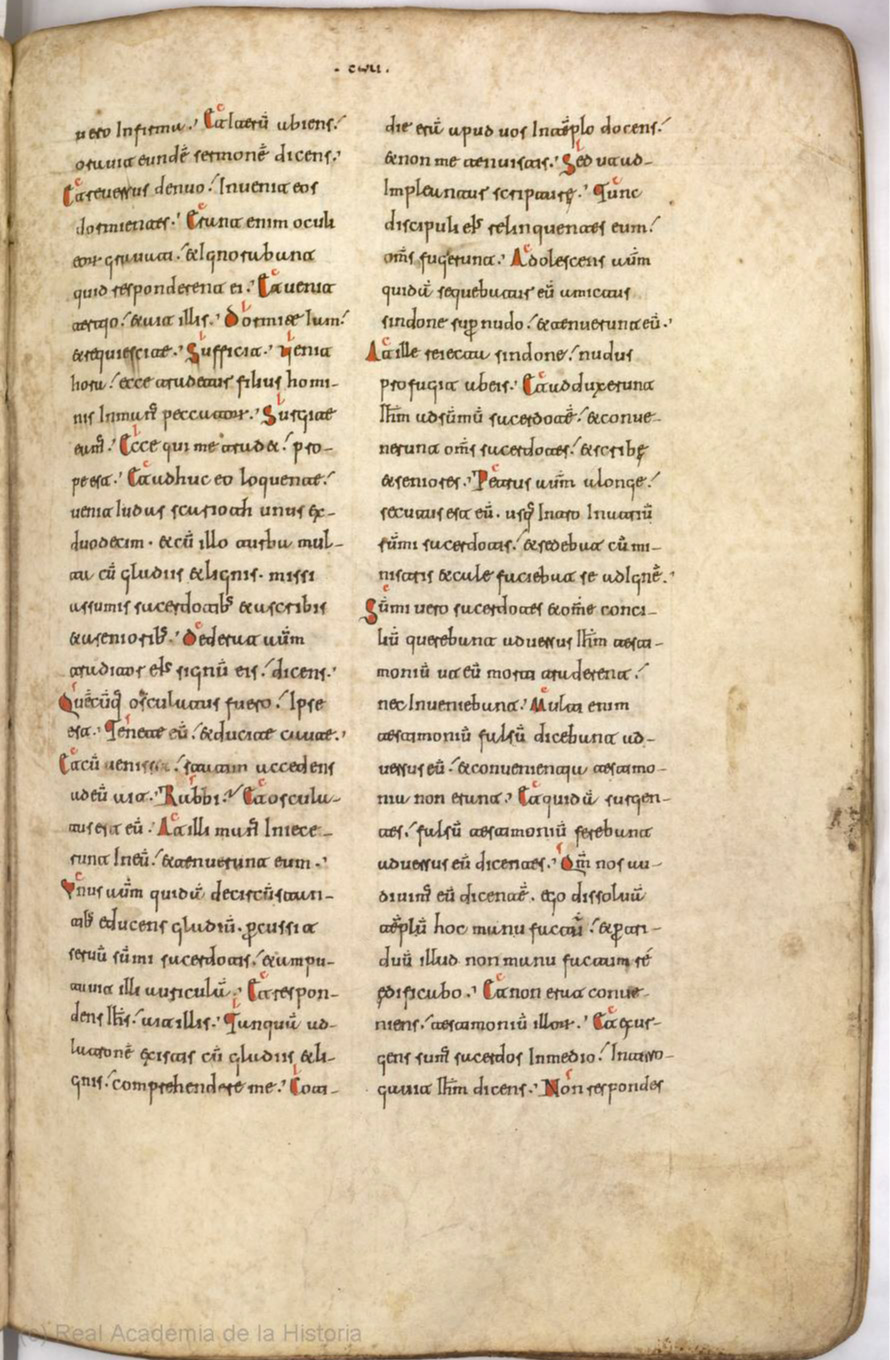 uero Infirma. Et Iterū abiens
orauit eundē sermonē dicens.
Et reuersus denuo Inuenit eos
dormientes. Erunt enim oculi
eor grauati. et Ignorabant
quid responderent ei. Et uenit
tertio et ait illis. Dormite Iam
et requiescite. Sufficit. Uenit
hora ecce tradetur filius homi-
nis In manꝰ peccator. Surgite
eamꝰ. Ecce qui me tradet pro-
pe est. Et adhuc eo loquente
uenit Iudas scarioth unus ex
duodecim. et cū illo turba mul-
ta cū gladiis et lignis. missi
a summis sacerdotibꝰ et a scribis
et a senioribꝰ. Dederat aūm
traditor eiꝰ signū eis dicens.
Quēcūq osculatus fuero Ipse
est. Tenete eū et ducite caute.
Et cū uenisset statim accedens
ad eū ait. Rabbi. Et oscula-
tus est eū. At illi manꝰ Iniece-
runt In eū et tenuerunt eum.
Unus aūm quidā de circūstan-
tibꝰ educens gladiū. ꝑcussit
seruū sūmi sacerdotis et ampu-
tauit illi auriculā. Et respon-
dens Ihs ait illis. Tanquā ad
latronē existis cū gladiis et li-
gnis comprehendere me. Coti-
die erā apud uos In tēplo docens
et non me tenuistis. Sed ut ad-
Impleantur scripturę. Tunc
discipuli eiꝰ relinquentes eum
oms fugerunt. Adolescens aūm
quidā sequebatur eū amictus
sindone suꝑ nudo et tenuerunt eū.
At ille reiecta sindone nudus
profugit ab eis. Et adduxerunt
Ihm ad sūmū sacerdotē et conue-
nerunt oms sacerdotes et scribę
et seniores. Petrus aūm a longe
secutus est eū. usq Intro In atriū
sūmi sacerdotis et sedebat cū mi-
nistris et calefaciebat se ad Ignē.
Sūmi uero sacerdotes et omē conci-
liū querebant aduersus Ihm testi-
moniū ut eū morti traderent
nec Inueniebant. Multi enim
testimoniū falsū dicebant ad-
uersus eū et conuenientia testimo-
nia non erant. Et quidā surgen-
tes falsū testimoniū ferebant
aduersus eū dicentes. Qm nos au-
diuimꝰ eū dicentē. ego dissoluā
tēplū hoc manu factū et ꝑ tri-
duū illud non manu factum re
edificabo. Et non erat conue-
niens testimoniū illor. Et exur-
gens sumꝰ sacerdos In medio Interro-
gauit Ihm dicens. Non respondes